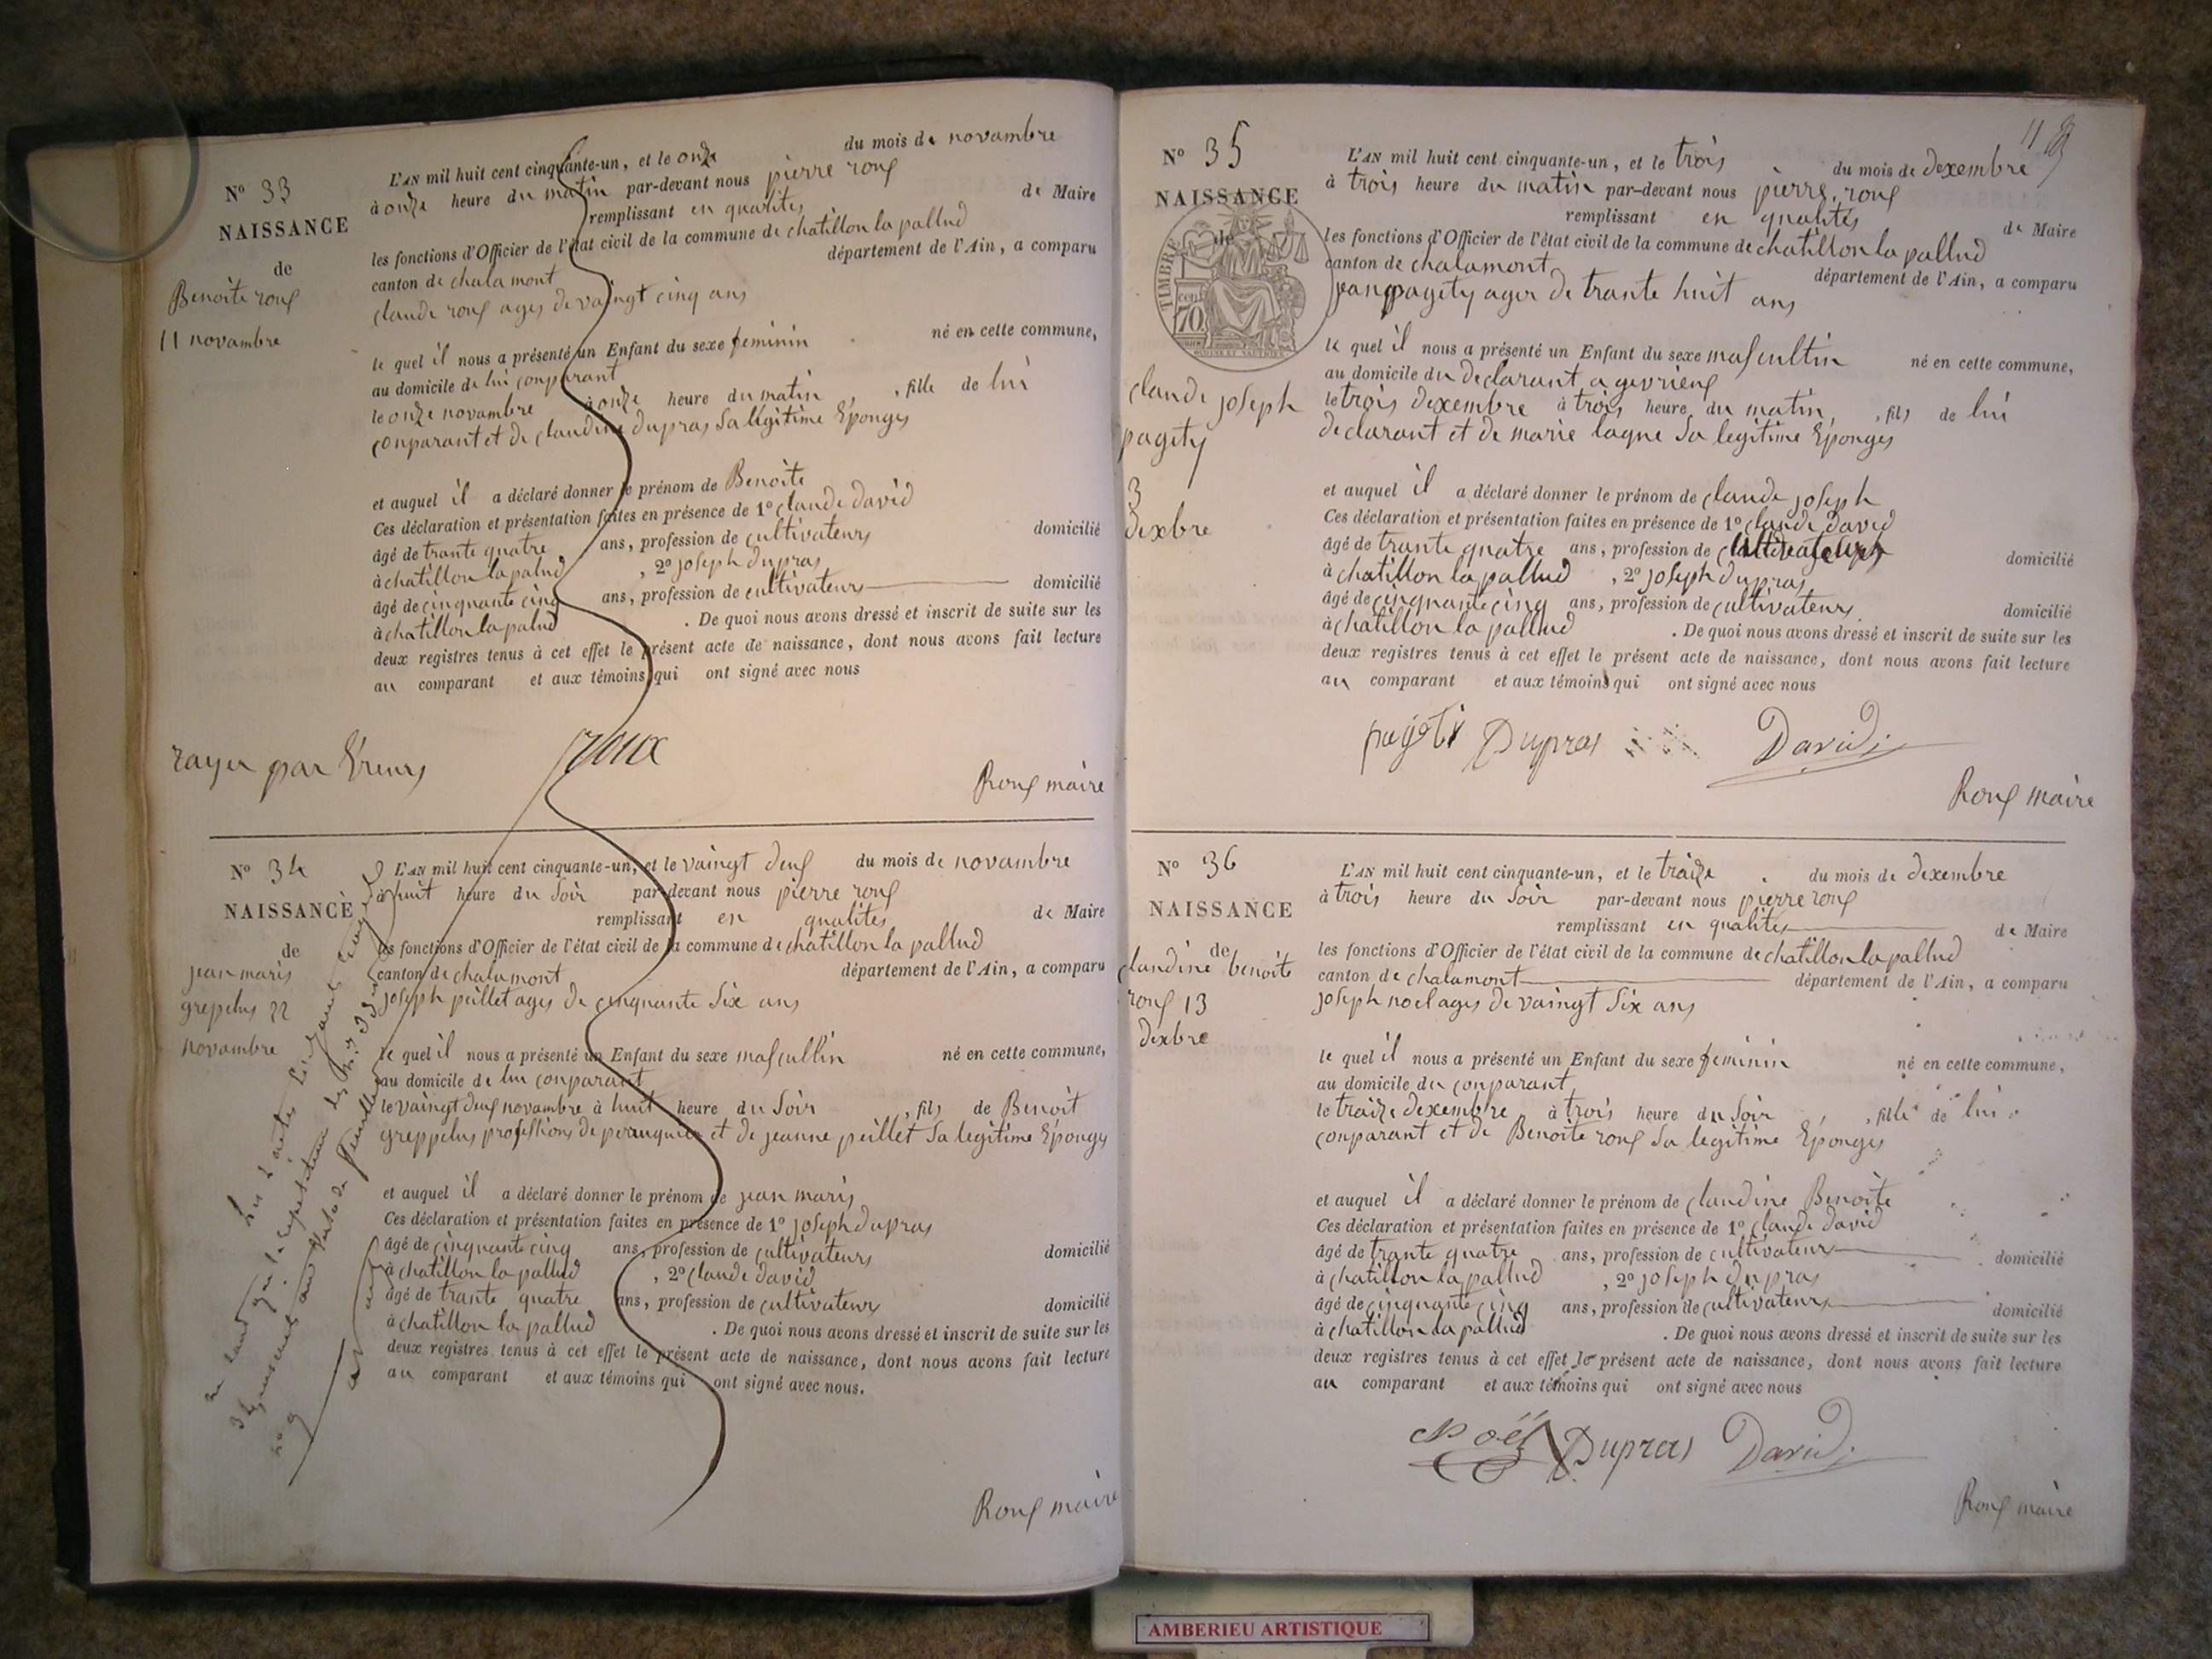 N° 33
NAISSANCE
de
Benoite rouf
11 novembre
L'AN mil huit cent cinquante-un, et le onze du mois de novembre
à onze heure du matin par-devant nous pierre rouf
remplissant en qualités de Maire
les fonctions d'Officier de l'état civil de la commune de chatillon la pallud
canton de chalamont département de l'Ain, a comparu
claude rouf ages de vaingt cinq ans
le quel il nous a présenté un Enfant du sexe feminin né en cette commune,
au domicile de lui conparant
le onze novembre à onze heure du matin, fille de lui
conparant et de claudine dupras Sa légitime Eponges
et auquel il a déclaré donner le prénom de Benoite
Ces déclaration et présentation faites en présence de 1° claude david
âgé de trante quatre ans, profession de cultivateurs domicilié
à chatillon la palud, 2° joseph dupras
âgé de cinquante cinq ans, profession de cultivateurs domicilié
à chatillon la palud. De quoi nous avons dressé et inscrit de suite sur les
deux registres tenus à cet effet le présent acte de naissance, dont nous avons fait lecture
au comparant et aux témoins qui ont signé avec nous
rayer par Ereurs
roux
Rouf maire
N° 34
NAISSANCE
de
jean maris
greppelus 22
novembre
L'AN mil huit cent cinquante-un, et le vaingt deuf du mois de novembre
à huit heure du Soir par-devant nous pierre rouf
remplissant en qualités de Maire
les fonctions d'Officier de l'état civil de la commune de chatillon la pallud
canton de chalamont département de l'Ain, a comparu
joseph peillet ages de cinquante Six ans
le quel il nous a présenté un Enfant du sexe masculin né en cette commune,
au domicile de lui conparant
le vaingt deuf novembre à huit heure du Soir, fils de Benoit
greppelus professions de peruquier et de jeanne peillet Sa legitime Eponges
et auquel il a déclaré donner le prénom de jean maris
Ces déclaration et présentation faites en présence de 1° joseph dupras
âgé de cinquante cinq ans, profession de cultivateurs domicilié
à chatillon la pallud, 2° claude david
âgé de trante quatre ans, profession de cultivateurs domicilié
à chatillon la pallud. De quoi nous avons dressé et inscrit de suite sur les
deux registres tenus à cet effet le présent acte de naissance, dont nous avons fait lecture
au comparant et aux témoins qui ont signé avec nous.
Rouf maire
N° 35
NAISSANCE
de
TIMBRE
70
claude joseph
pagety
3
dexbre
L'AN mil huit cent cinquante-un, et le trois du mois de dexembre
à trois heure du matin par-devant nous pierre rouf
remplissant en qualités de Maire
les fonctions d'Officier de l'état civil de la commune de chatillon la pallud
canton de chalamont département de l'Ain, a comparu
jean pagety ager de trante huit ans
le quel il nous a présenté un Enfant du sexe masculin né en cette commune,
au domicile du declarant a gevrieux
le trois dexembre à trois heure du matin, fils de lui
declarant et de marie lagne Sa legitime Eponges
et auquel il a déclaré donner le prénom de claude joseph
Ces déclaration et présentation faites en présence de 1° claude david
âgé de trante quatre ans, profession de cultivateurs domicilié
à chatillon la pallud, 2° joseph dupras
âgé de cinquante cinq ans, profession de cultivateurs domicilié
à chatillon la pallud. De quoi nous avons dressé et inscrit de suite sur les
deux registres tenus à cet effet le présent acte de naissance, dont nous avons fait lecture
au comparant et aux témoins qui ont signé avec nous
Dupras David
Rouf maire
N° 36
NAISSANCE
de
claudine benoite
rouf 13
dexbre
L'AN mil huit cent cinquante-un, et le traize du mois de dexembre
à trois heure du Soir par-devant nous pierre rouf
remplissant en qualités de Maire
les fonctions d'Officier de l'état civil de la commune de chatillon la pallud
canton de chalamont département de l'Ain, a comparu
joseph noel ages de vaingt Six ans
le quel il nous a présenté un Enfant du sexe feminin né en cette commune,
au domicile du conparant
le traize dexembre à trois heure du Soir, fille de lui
conparant et de Benoite rouf Sa legitime Eponges
et auquel il a déclaré donner le prénom de claudine Benoite
Ces déclaration et présentation faites en présence de 1° claude david
âgé de trante quatre ans, profession de cultivateurs domicilié
à chatillon la pallud, 2° joseph dupras
âgé de cinquante cinq ans, profession de cultivateurs domicilié
à chatillon la pallud. De quoi nous avons dressé et inscrit de suite sur les
deux registres tenus à cet effet le présent acte de naissance, dont nous avons fait lecture
au comparant et aux témoins qui ont signé avec nous
Noël Dupras David
Rouf maire
AMBERIEU ARTISTIQUE